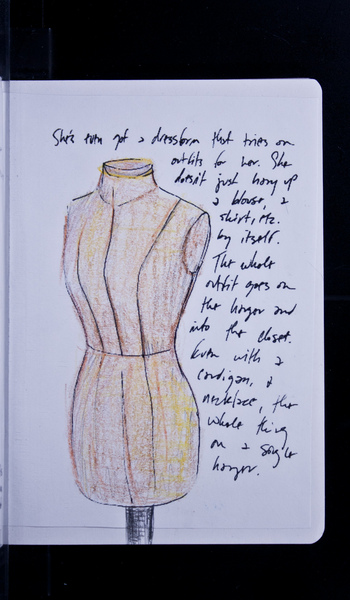 She's even got a dressform that tries on
outfits for her. She
doesn't just hang up
a blouse, a
skirt, etc.
by itself.
The whole
outfit goes on
the hanger and
into the closet.
Even with a
cardigan, a
necklace, the
whole thing
on a single
hanger.